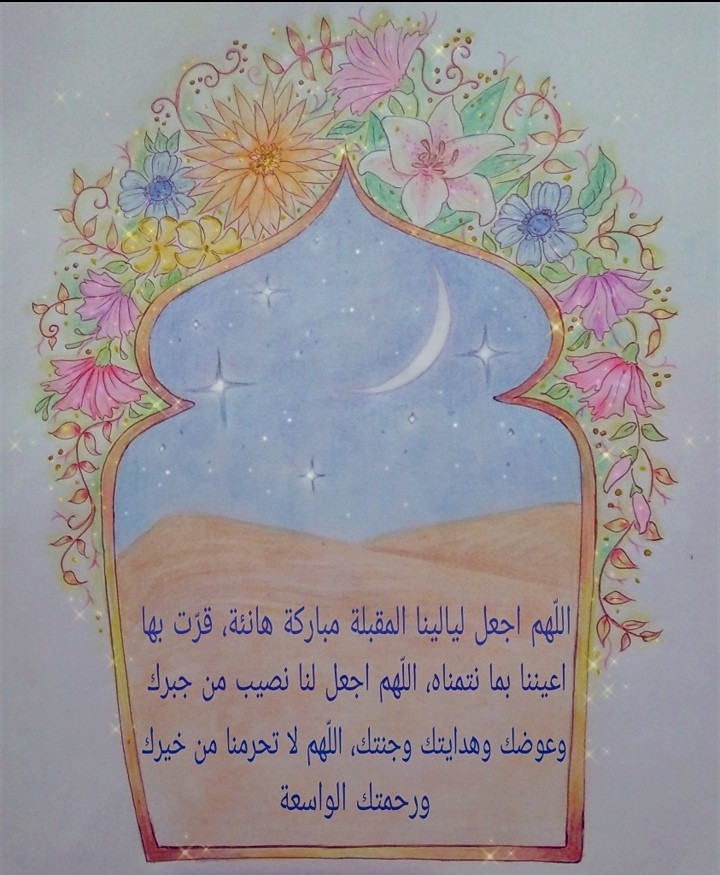 اللّهم اجعل ليالينا المقبلة مباركة هانئة، قرّت بها
اعيننا بما نتمناه، اللّهم اجعل لنا نصيب من جبرك
وعوضك وهدايتك وجنتك، اللّهم لا تحرمنا من خيرك
ورحمتك الواسعة